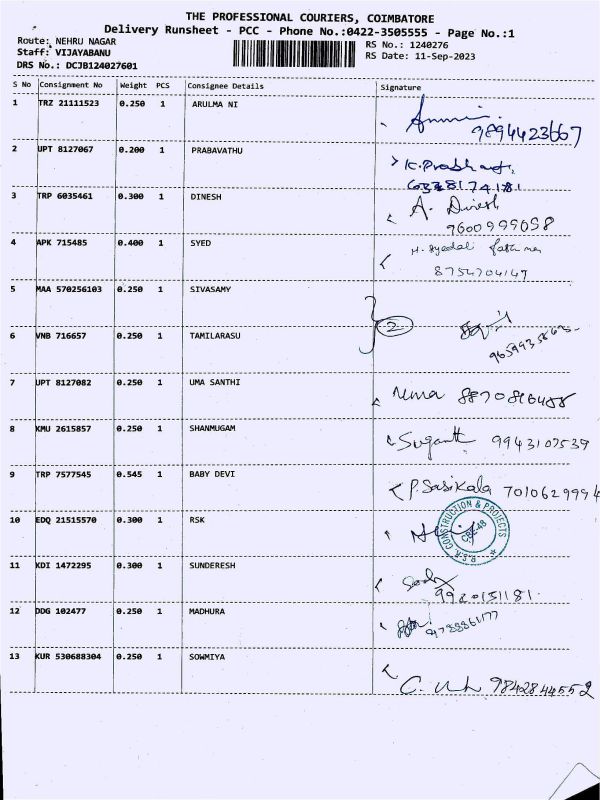 THE PROFESSIONAL COURIERS, COIMBATORE
Delivery Runsheet - PCC - Phone No.:0422-3505555 - Page No.:1
Route: NEHRU NAGAR
RS No.: 1240276
Staff: VIJAYABANU
RS Date: 11-Sep-2023
DRS No.: DCJB124027601
S No Consignment No Weight PCS Consignee Details Signature
1 TRZ 21111523 0.250 1 ARULMA NI
9894423667
2 UPT 8127067 0.200 1 PRABAVATHU
K.Prabha
3 TRP 6035461 0.300 1 DINESH A. Dinesh
9600999058
4 APK 715485 0.400 1 SYED
8754704147
5 MAA 570256103 0.250 1 SIVASAMY
2
6 VNB 716657 0.250 1 TAMILARASU
7 UPT 8127082 0.250 1 UMA SANTHI
8 KMU 2615857 0.250 1 SHANMUGAM
Suganth 9943107539
9 TRP 7577545 0.545 1 BABY DEVI
P. Sasikala 7010629994
10 EDQ 21515570 0.300 1 RSK
R.S.K. CONSTRUCTION & PROJECTS
CBE-48
11 KDI 1472295 0.300 1 SUNDERESH
12 DDG 102477 0.250 1 MADHURA
13 KUR 530688304 0.250 1 SOWMIYA
9842844552